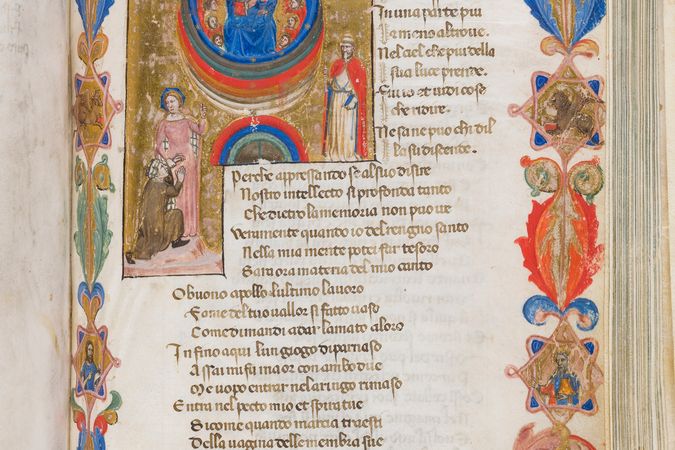 In una parte piu
a meno altrove.
Nel ciel che piu della
sua luce prende.
Fu io et vidi cose
che ridire.
Ne sa ne puo chi di l
la su discende.
Perche appressando se al suo disire
Nostro intellecto si profonda tanto
Che dietro la memoria non puo ve
Veramente quando io del rengno santo
Nella mia mente potei far tesoro
Sara ora materia del mio canto
O buono apollo lultimo lavoro
Fame del tuo vallor si fatto vaso
Come dimandi a dar lamato aloro
In fino a qui lun giogo di parnaso
A ssai mi fu ma or con ambo due
Me vopo entrar nel aringo rimaso
Entra nel pecto mio et spira tue
Si come quando marcia traesti
Della vagina delle membra sue